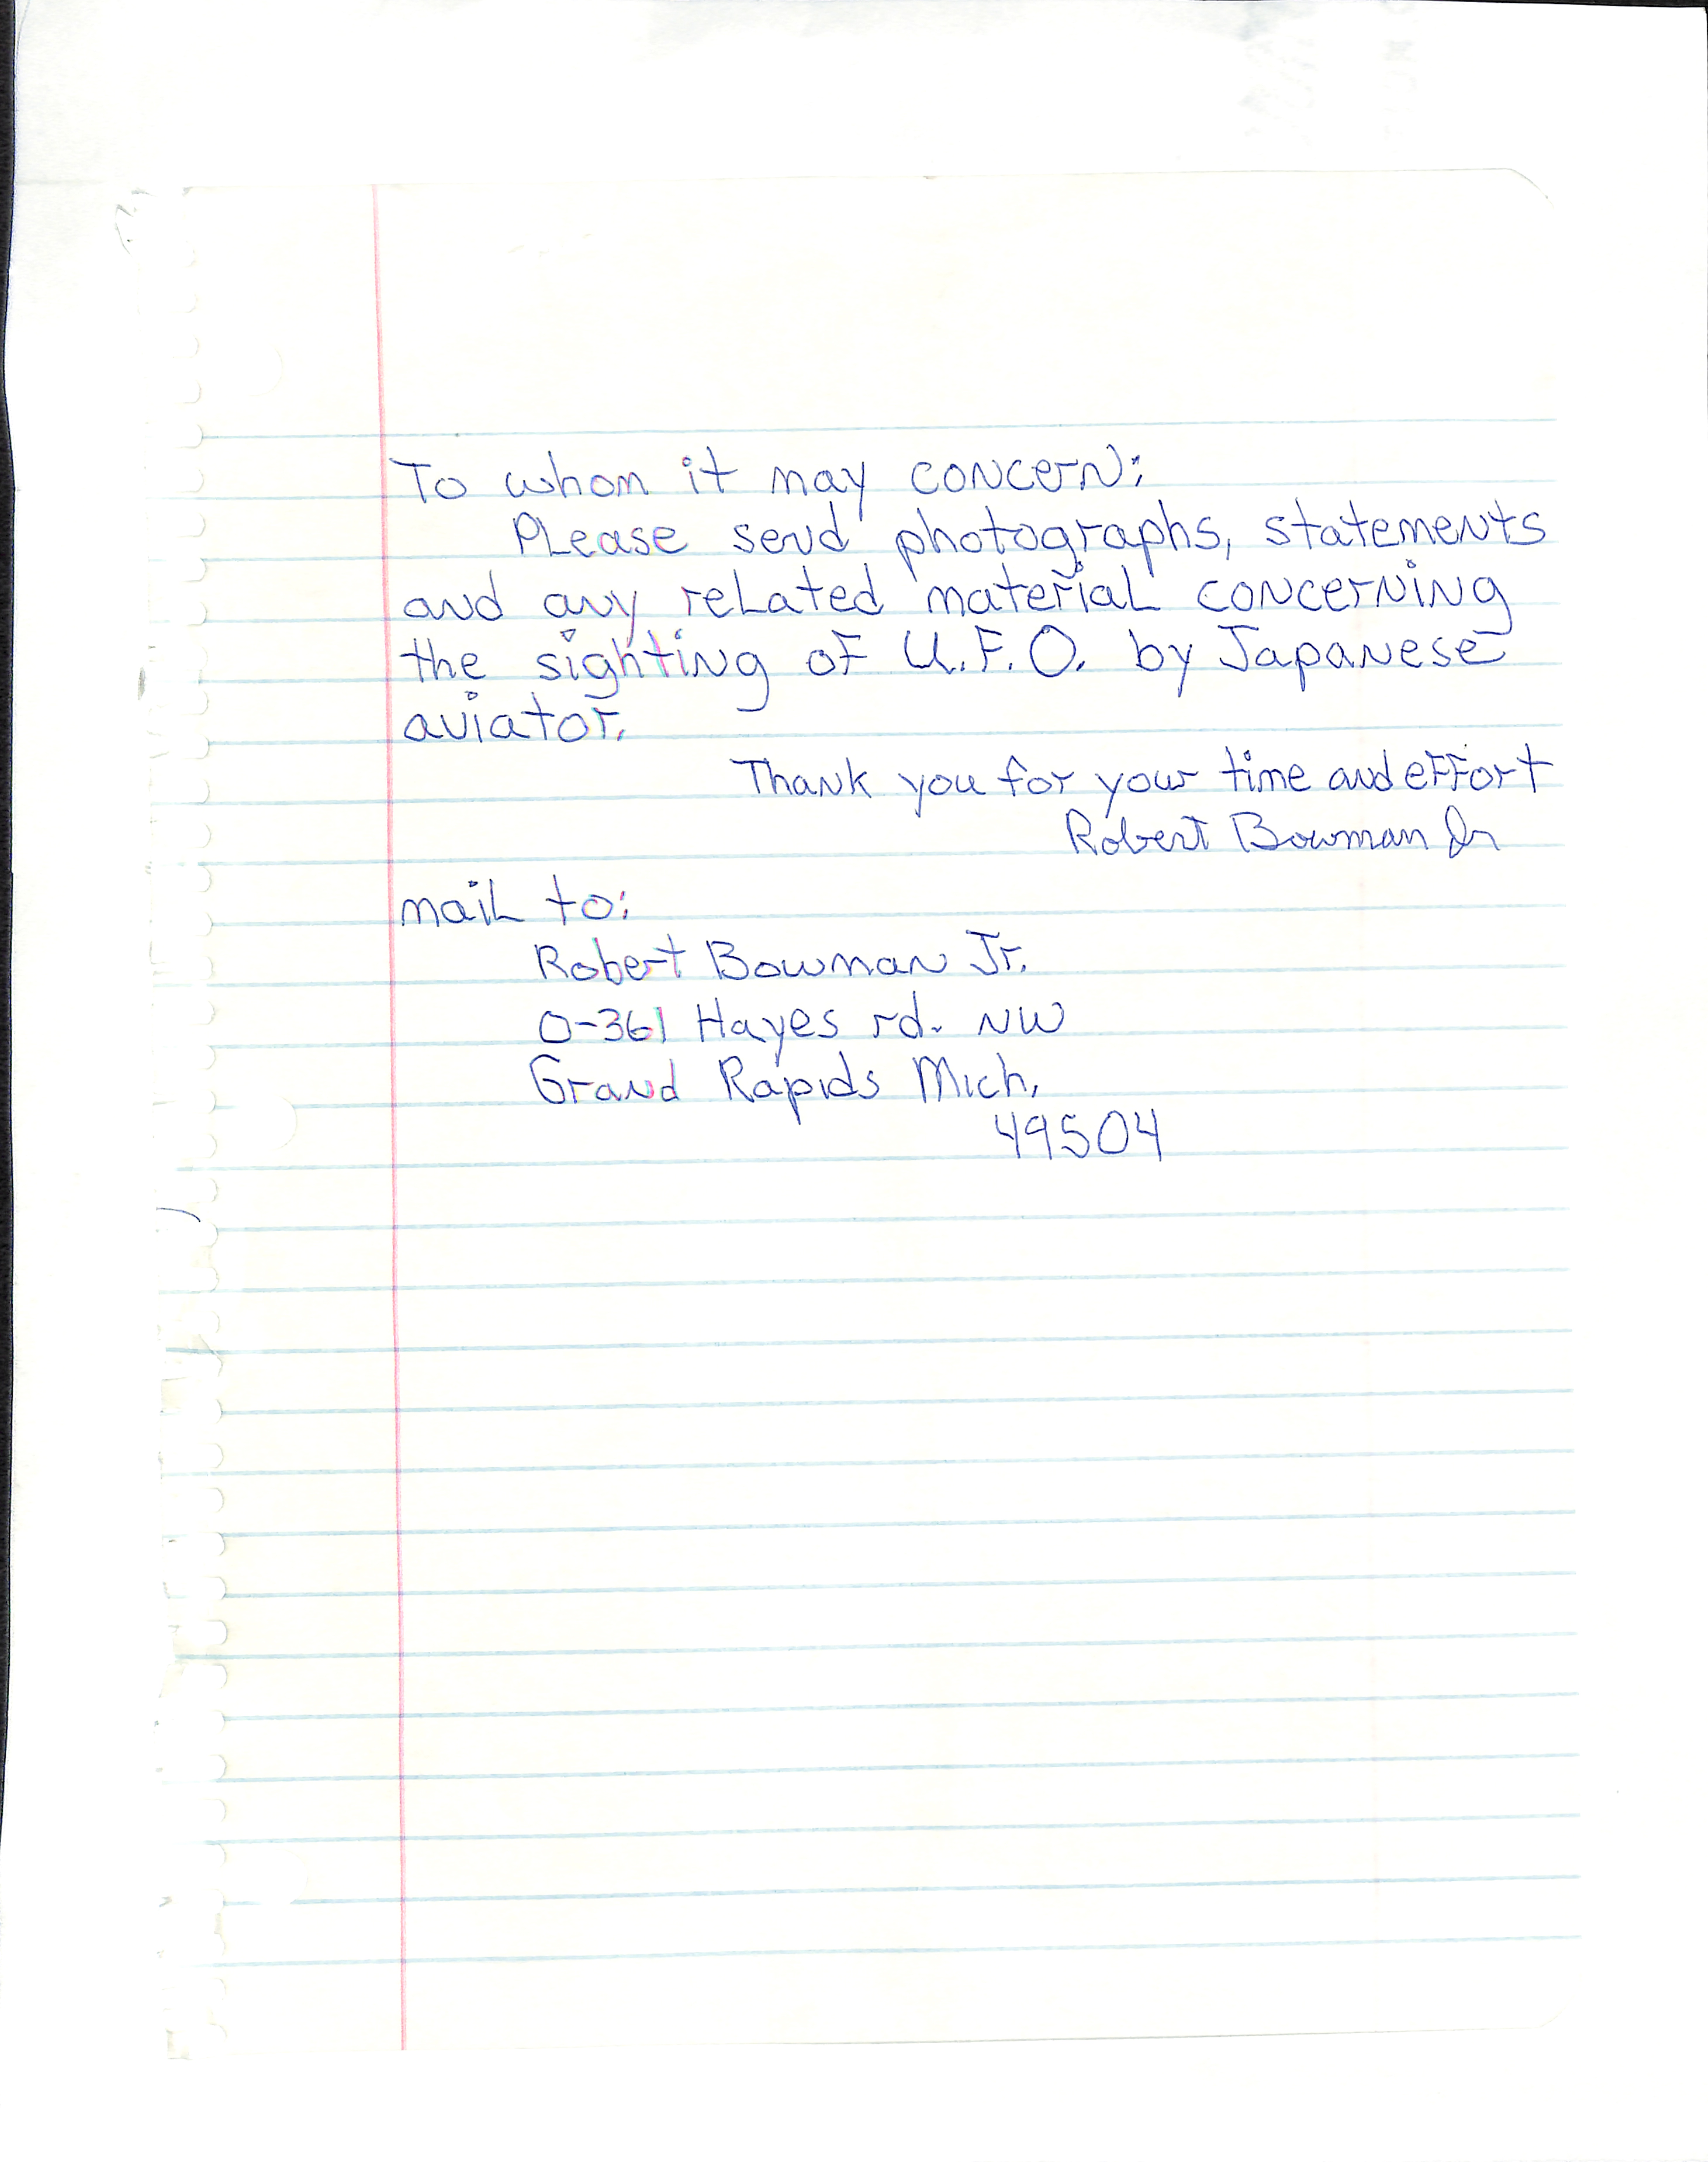 To whom it may concern:
Please send photographs, statements
and any related material concerning
the sighting of U.F.O. by Japanese
aviator.
Thank you for your time and effort
Robert Bowman Jr
mail to:
Robert Bowman Jr.
0-361 Hayes rd. NW
Grand Rapids Mich.
49504